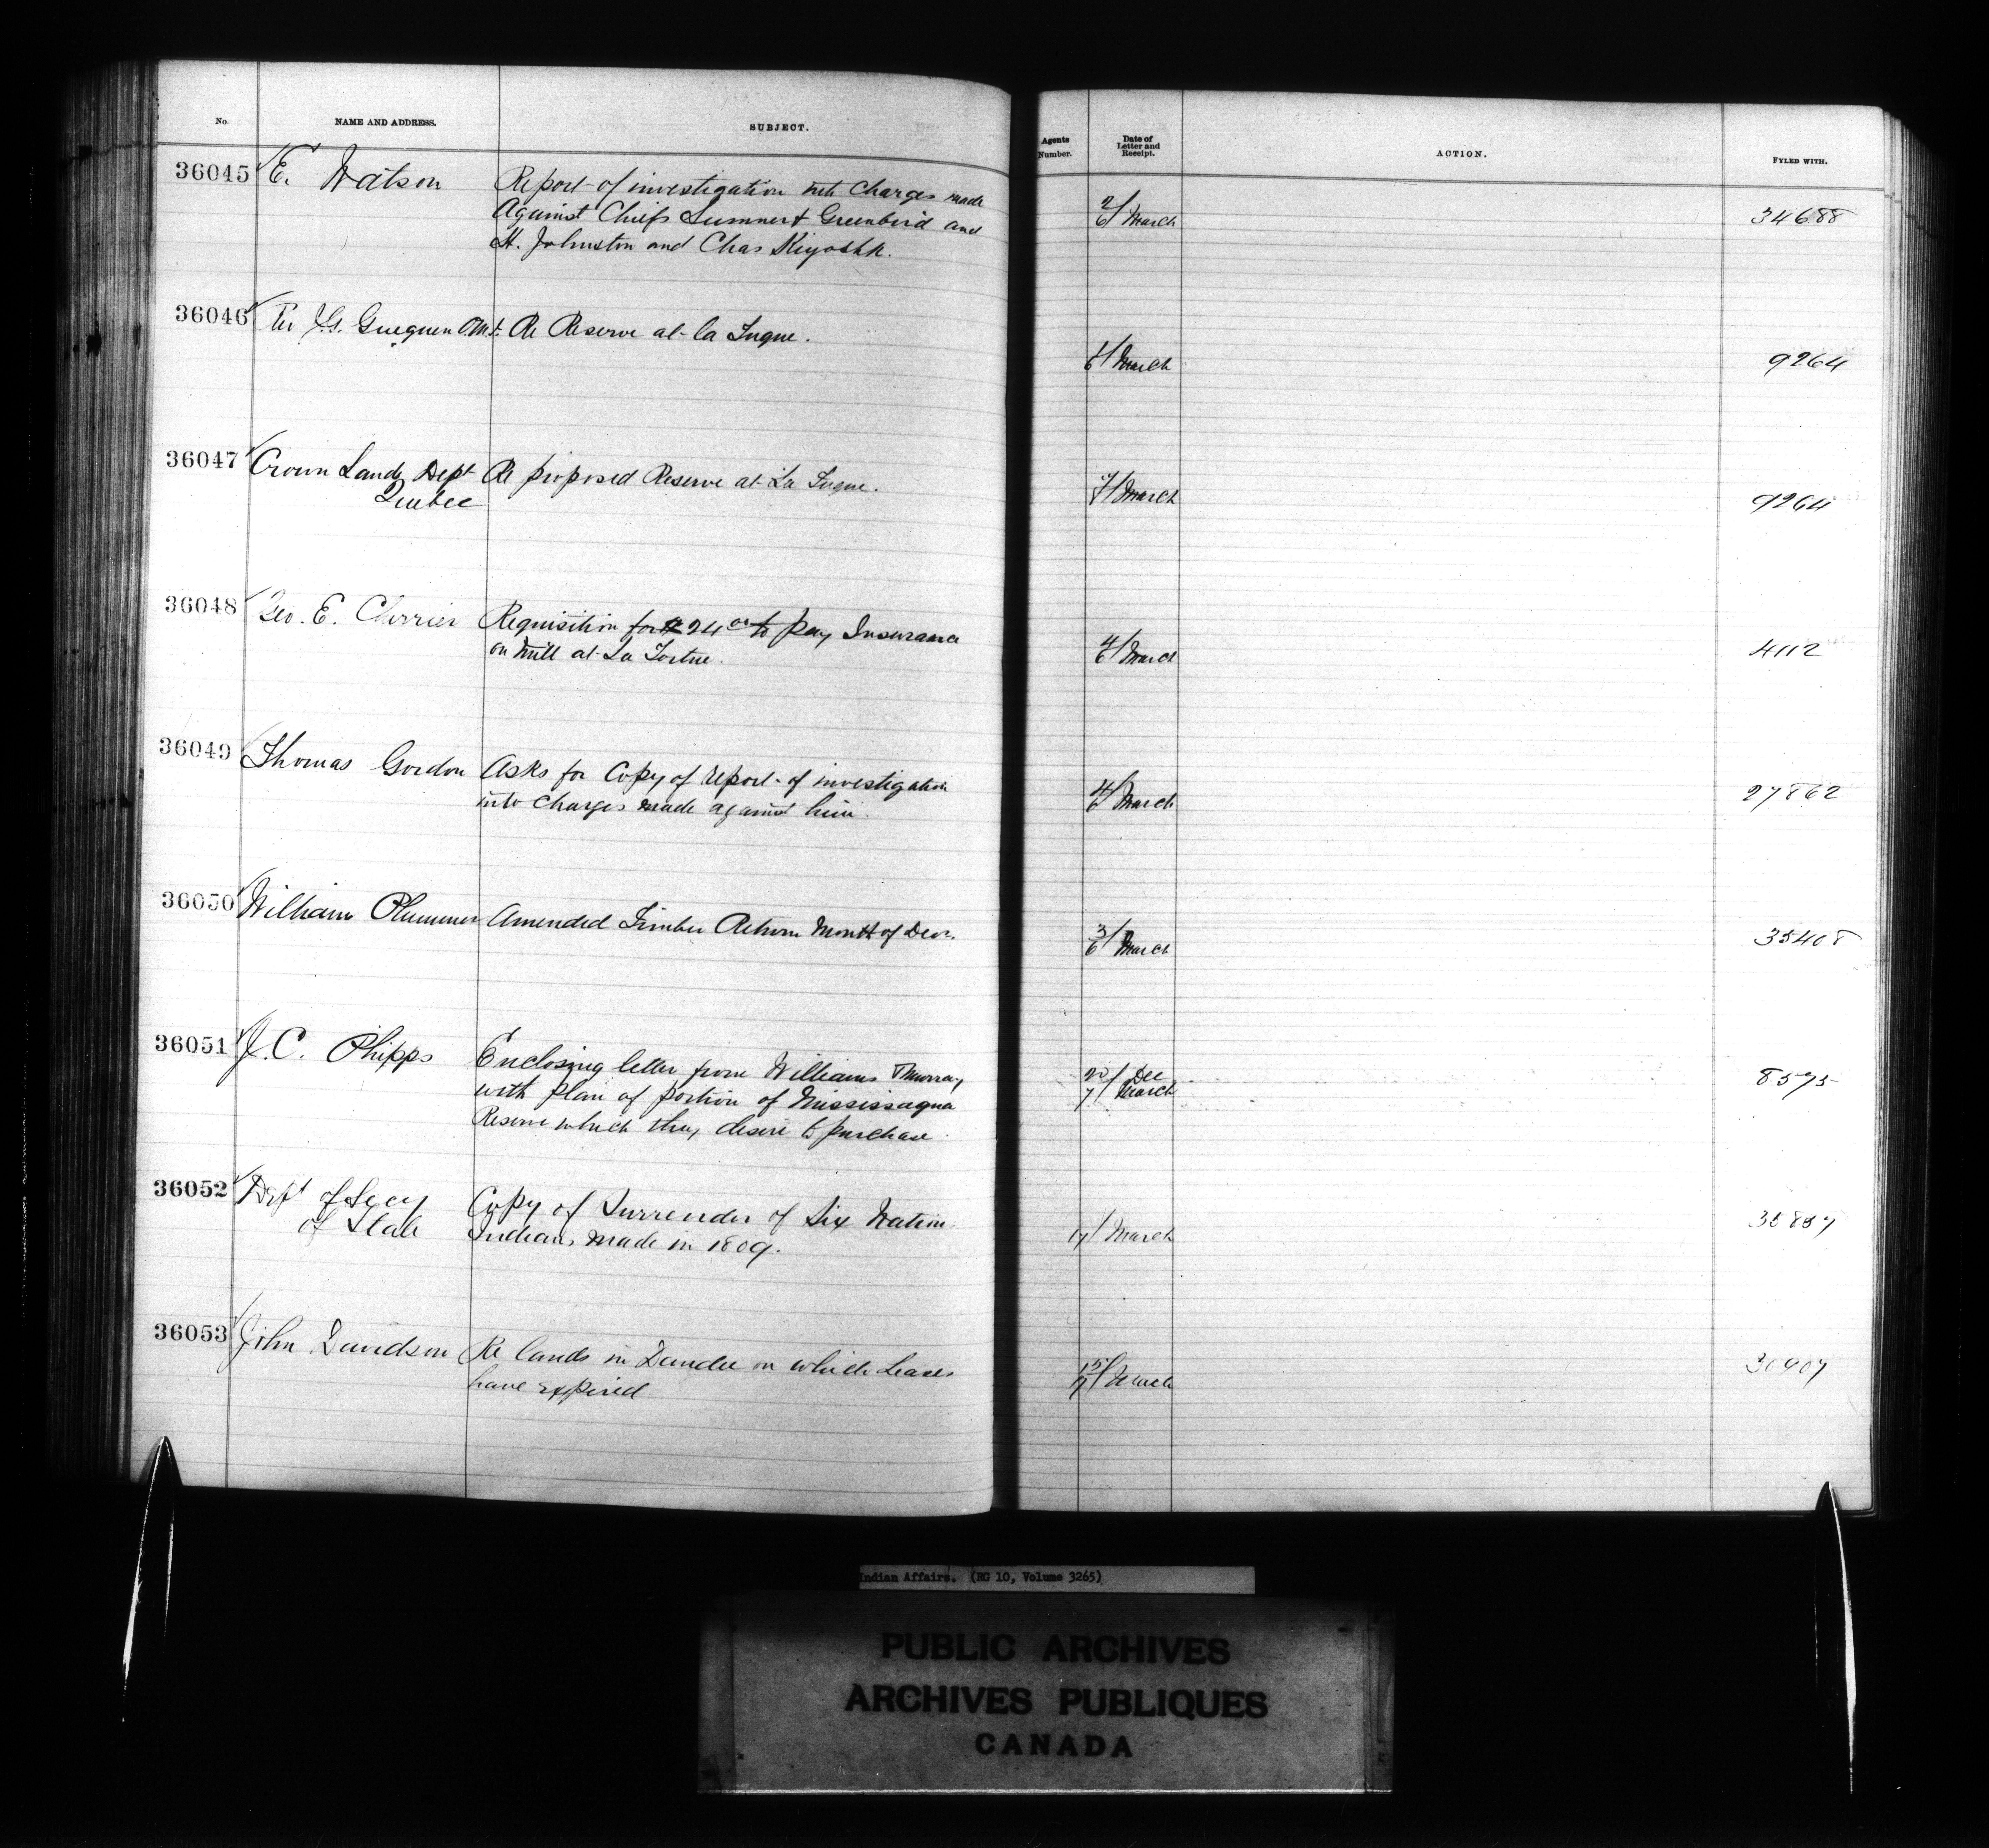 No.
NAME AND ADDRESS.
SUBJECT.
Agents Number.
Date of Letter and Receipt.
ACTION.
FYLED WITH.
36045 E. Watson Report of investigation into Charges made
Against Chiefs Sumner & Greenbird and
H. Johnston and Chas Kiyoshk.
2/6 March 34688
36046 Rev J. Gueguen O.M.I. Re Reserve at la Tuque.
6 March 9264
36047 Crown Lands Dept Re proposed Reserve at La Tuque.
Quebec
7 March 9264
36048 Geo. E. Cherrier Requisition for $24 00 to pay Insurance
on Mill at La Tortue.
4/6 March 4112
36049 Thomas Gordon Asks for Copy of report of investigation
into Charges made against him.
4/6 March 27862
36050 William Plummer Amended Timber Return Month of Decr.
3/6 March 35408
36051 J. C. Phipps Enclosing letter from Williams & Murray
with plan of portion of Mississagua
Reserve which they desire to purchase.
20/7 Dec March 8575
36052 Dept of Secy Copy of Surrender of Six Nation
of State Indians made in 1809.
7 March 35857
36053 John Davidson Re lands in Dundee on which Leases
have expired
March 30907
Indian Affairs. (RG 10, Volume 3265)
PUBLIC ARCHIVES
ARCHIVES PUBLIQUES
CANADA